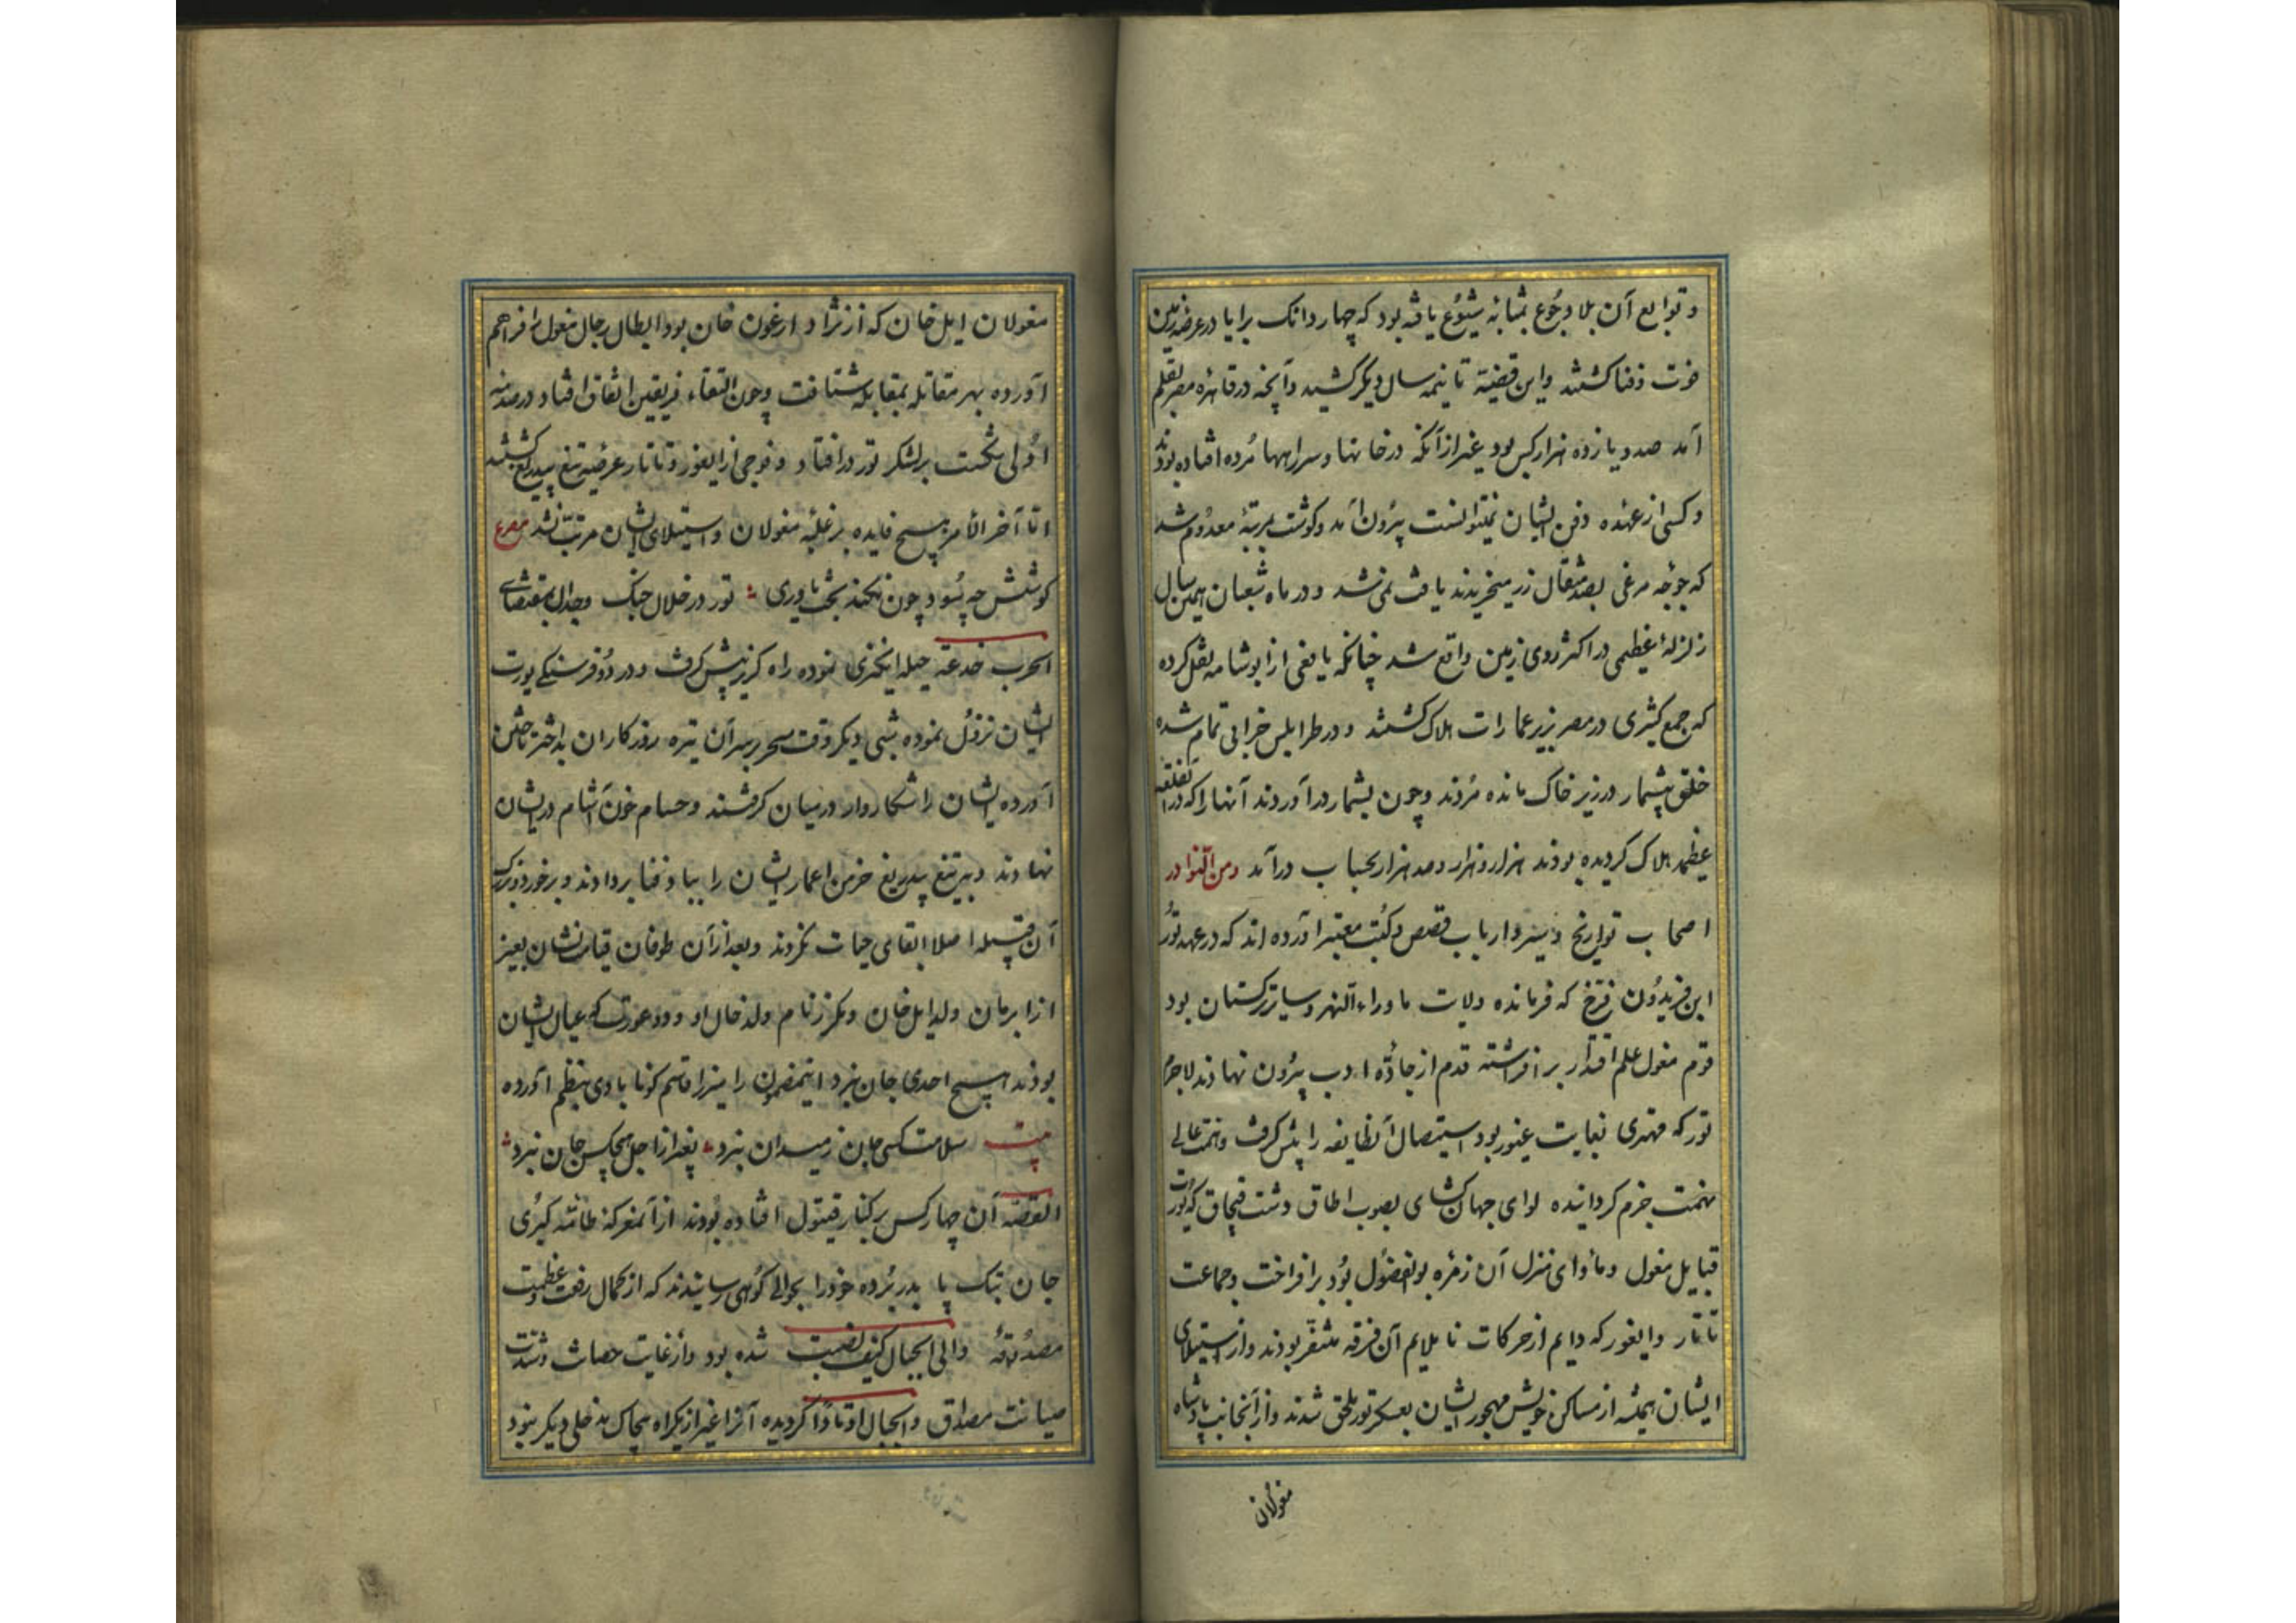 و توابع آن بلا و جوع بمثابه شیوع یافته بود که چهار دانک برایا در عرضه زمین
فوت و فنا کشتند و این قضیه تا نیمه سال دیکر کشید و آنچه در قاهره مصر بقلم
آمد صد و یازده هزار کس بود غیر از آنکه در خانها و سراها مرده افتاده بودند
و کسی از عهده دفن ایشان نمیتوانست بیرون آمد و کوشت بمرتبه معدوم شد
که جوجه مرغی بصد مثقال زر میخریدند یافت نمی شد و در ماه شعبان همین سال
زلزله عظیمی در اکثر روی زمین واقع شد چنانکه یافعی از ابوشامه نقل کرده
که جمع کثیری در مصر بزیر عمارات هلاک کشتند و در طرابلس خرابی تمام شده
خلق بیشمار در زیر خاک مانده مردند و چون بشمار درآوردند آنها را که در آن
عظیمه هلاک کردیده بودند هزار هزار و صد هزار بحساب درآمد ومن النوادر
اصحاب تواریخ و سیر و ارباب قصص و کتب معتبر آورده اند که در عهد تور
ابن فریدون فرخ که فرمانده ولایت ماوراء النهر و سایر ترکستان بود
قوم مغول علم اقتدار برافراشته قدم از جاده ادب بیرون نهادند لاجرم
تور که مهتری بغایت غیور بود استیصال آنطایفه را پیش کرفت و همت عالی
نهمت جزم کردانیده لوای جهان کشای بصوب اطاق دشت قبچاق که یورت
قبایل مغول و مأوای منزل آن زمره بوالفضول بود برافراخت و جماعت
تاتار و ایغور که دایم از حرکات ناملایم آن فرقه متنفر بودند و از استیلای
ایشان همیشه از مساکن خویش مهجور ایشان بعسکر تور ملحق شدند و از آنجانب پادشاه
مغولان
مغولان ایل خان که از نژاد ارغون خان بود ابطال رجال مغول را فراهم
آورده بهر مقاتله بمقابله شتافت و چون التقاء فریقین اتفاق افتاد در صدمه
اولی شکست بر لشکر تور درافتاد و فوجی از ایغور و تاتار عرضه تیغ بیدریغ کشتند
اما آخر الامر هیچ فایده بر غلبه مغولان و استیلای ایشان مرتب نشد مصرع
کوشش چه سود چون نکند بخت یاوری تور در خلال جنک و جدال بمقتضای
الحرب خدعة حیله انکیزی نموده راه کریز پیش کرفت و در دو فرسنکی یورت
ایشان نزول نموده شبی دیکر وقت سحر بر سر آن تیره روزکاران بداختر تاختن
آورده ایشان را شکاروار در میان کرفتند و حسام خون آشام در ایشان
نهادند و بتیغ بیدریغ خرمن اعمار ایشان را بباد فنا بردادند و بر خورد و بزرک
آن قبیله اصلا ابقای حیات نکردند و بعد از آن طوفان قیامت نشان بغیر
از ابرمان ولد ایل خان و نکرز نام ولد خال او و دو عورت که عیال ایشان
بودند هیچ احدی جان نبرد اینمضمون را میرزا قاسم کونابادی بنظم آورده
بیت سلامت کسی جان ز میدان نبرد بغیر از اجل هیچکس جان نبرد
القصه آن چهار کس بر کنار قیتول افتاده بودند از آن معرکه طامه کبری
جان بتک پا بدر برده خود را بحوالی کوهی رسانیدند که از کمال رفعت و عظمت
مصدوقه والی الجبال کیف نصبت شده بود و از غایت حصانت و شدت
صیانت مصداق والجبال اوتادا کردیده آنرا غیر از یکراه هیچاک مدخلی دیکر نبود